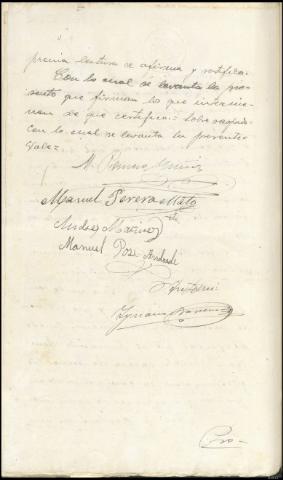 previa lectura se afirma y ratifica.
Con lo cual se levanta la pre-
sente que firman los que intervie-
nen de que certifico = Sobre raspado
Con lo cual se levanta la presente
Vale =
M. Romero
Manuel Pereira Mato
Andrés
Manuel Pose Andrade
Ignacio